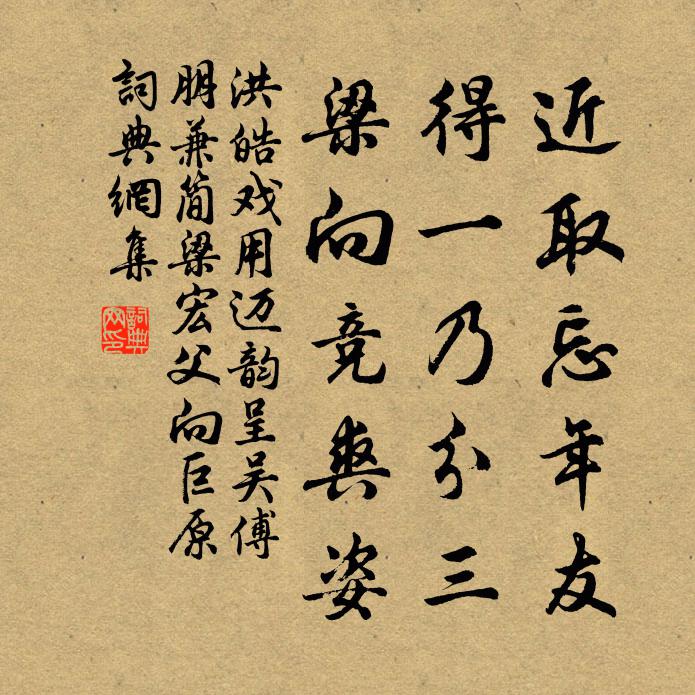 近取忘年友
得一乃分三
梁向竞爽姿
洪皓戏用迈韵呈吴傅
朋兼简梁宏父向巨原
詞典網集
詞典
网印